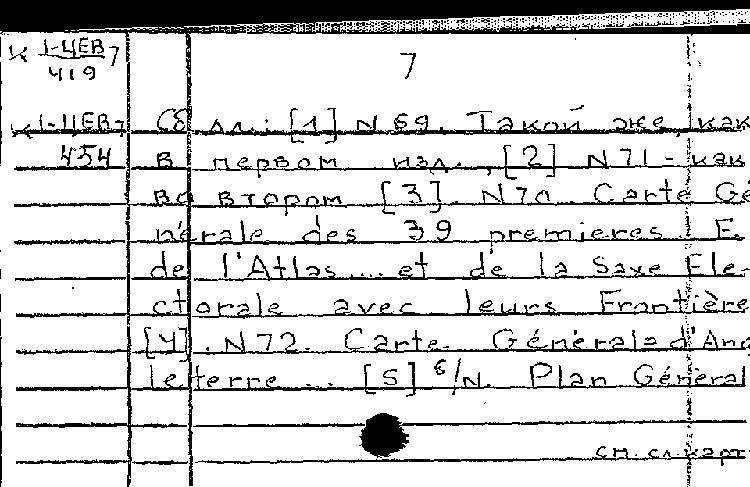 К 1-ЦЕВ7
419
7
К 1-ЦЕВ7 Сб л.л.: [1] N 69. Такой же, как
454 в первом изд., [2] N 71 - как
во втором [3]. N 70. Carte Gé
nérale des 39 premieres F.
de l'Atlas... et de la Saxe Ele-
ctorale avec leurs Frontière
[4]. N 72. Carte Générale d'Ang
leterre... [5] б/N. Plan Géneral
см. сл. карт